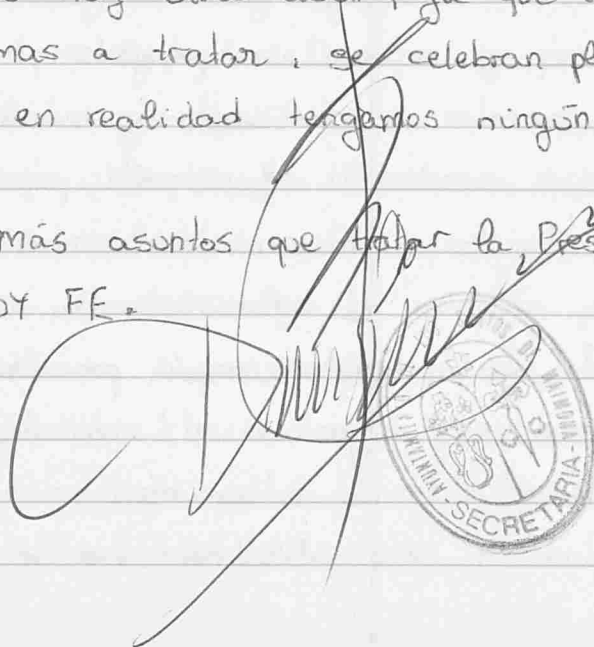 mas a tratar, se celebran
en realidad tengamos ningún
más asuntos que tratar la Pres
OY FE.
AYUNTAMI
DE MAIMONA
-SECRETARIA-